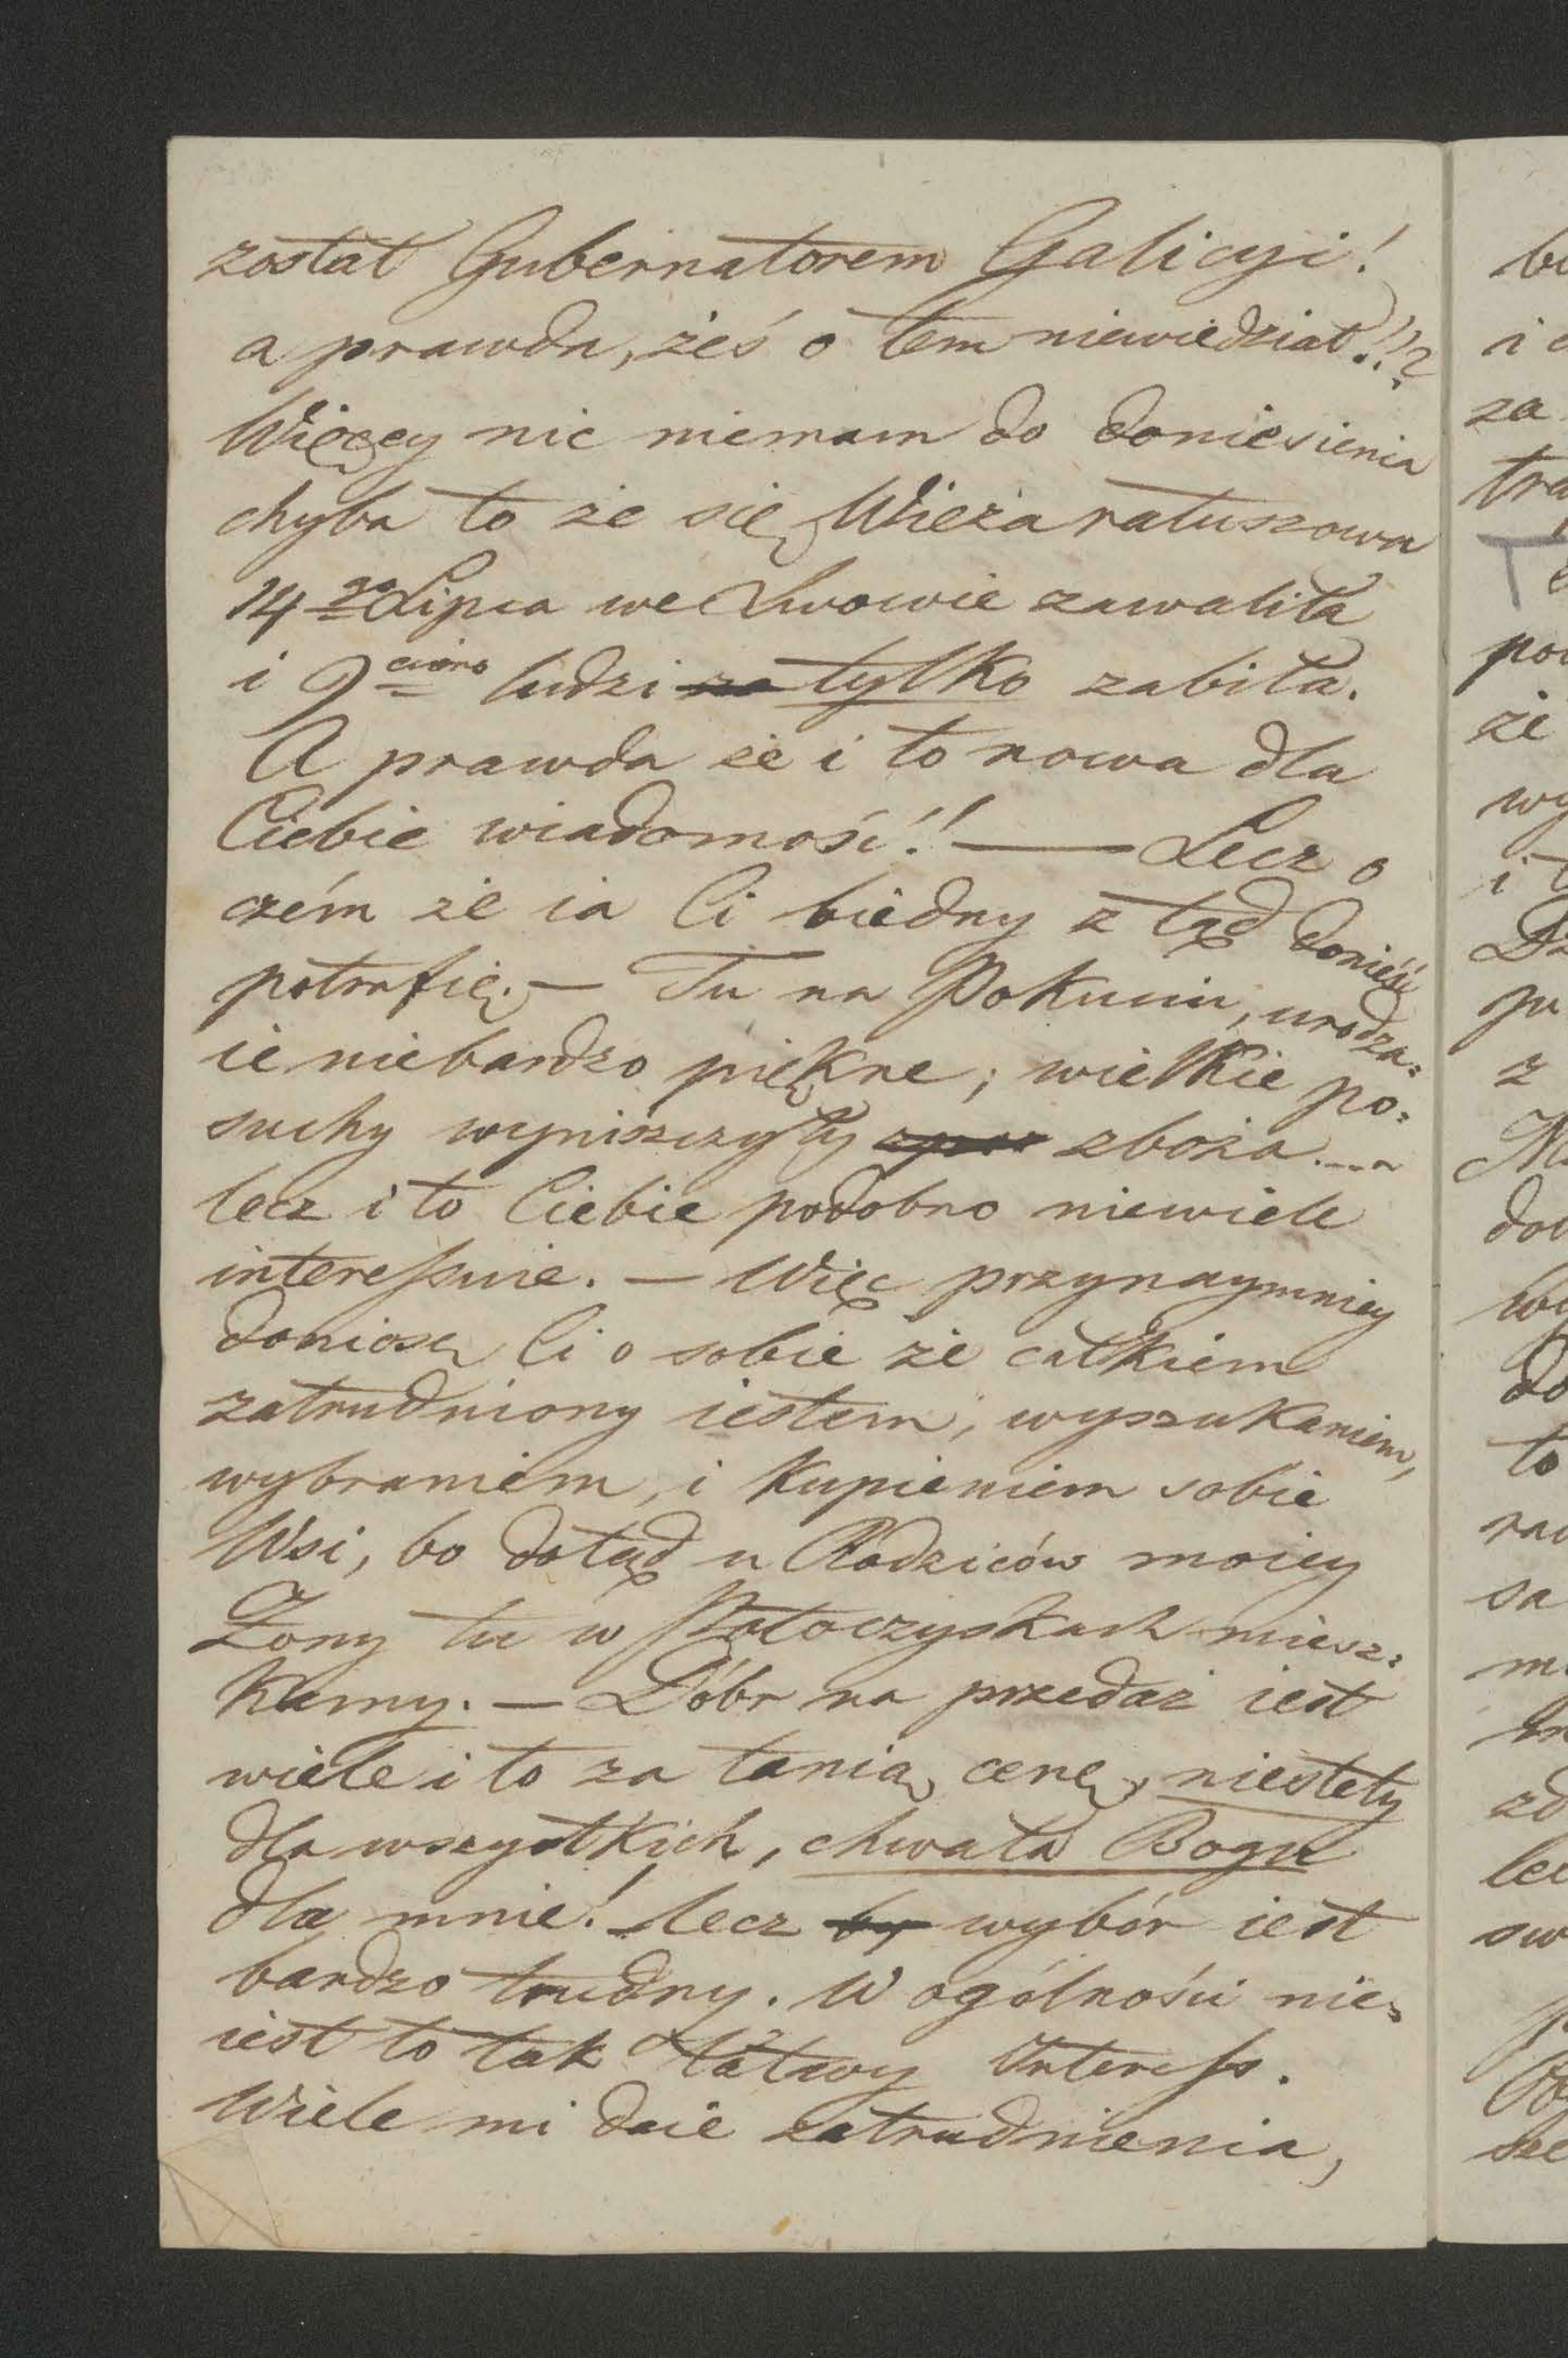 został Gubernatorem Galicyi!
a prawda, żeś o tem niewiedział!!?
Więcey nic niemam do doniesienia
chyba to że się Wieża ratuszowa
14go Lipca we Lwowie zawaliła
i 9cioro ludzi za tylko zabiła.
A prawda że i to nowa dla
Ciebie wiadomość!! — Lecz o
czém że ia Ci biedny z tąd donieść
potrafię. — Tu na Pokuciu, urodza=
ie niebardzo piękne; wielkie po=
suchy wyniszczyły zboża....
lecz i to Ciebie podobno niewiele
interessuie. — Więc przynaymniey
doniosę Ci o sobie że całkiem
zatrudniony iestem, wyszukaniem,
wybraniem, i kupieniem sobie
Wsi, bo dotąd u Rodziców moiey
Żony tu w Potoczyskach miesz=
kamy. — Dóbr na przedaż iest
wiele i to za tanią cenę, niestety
dla wszystkich, chwała Bogu
dla mnie! lecz by wybór iest
bardzo trudny. W ogólności nie=
iest to tak łatwy Interess.
Wiele mi daie zatrudnienia,
bi
za
tra
po
że
wy
z
do
to
sa
zd